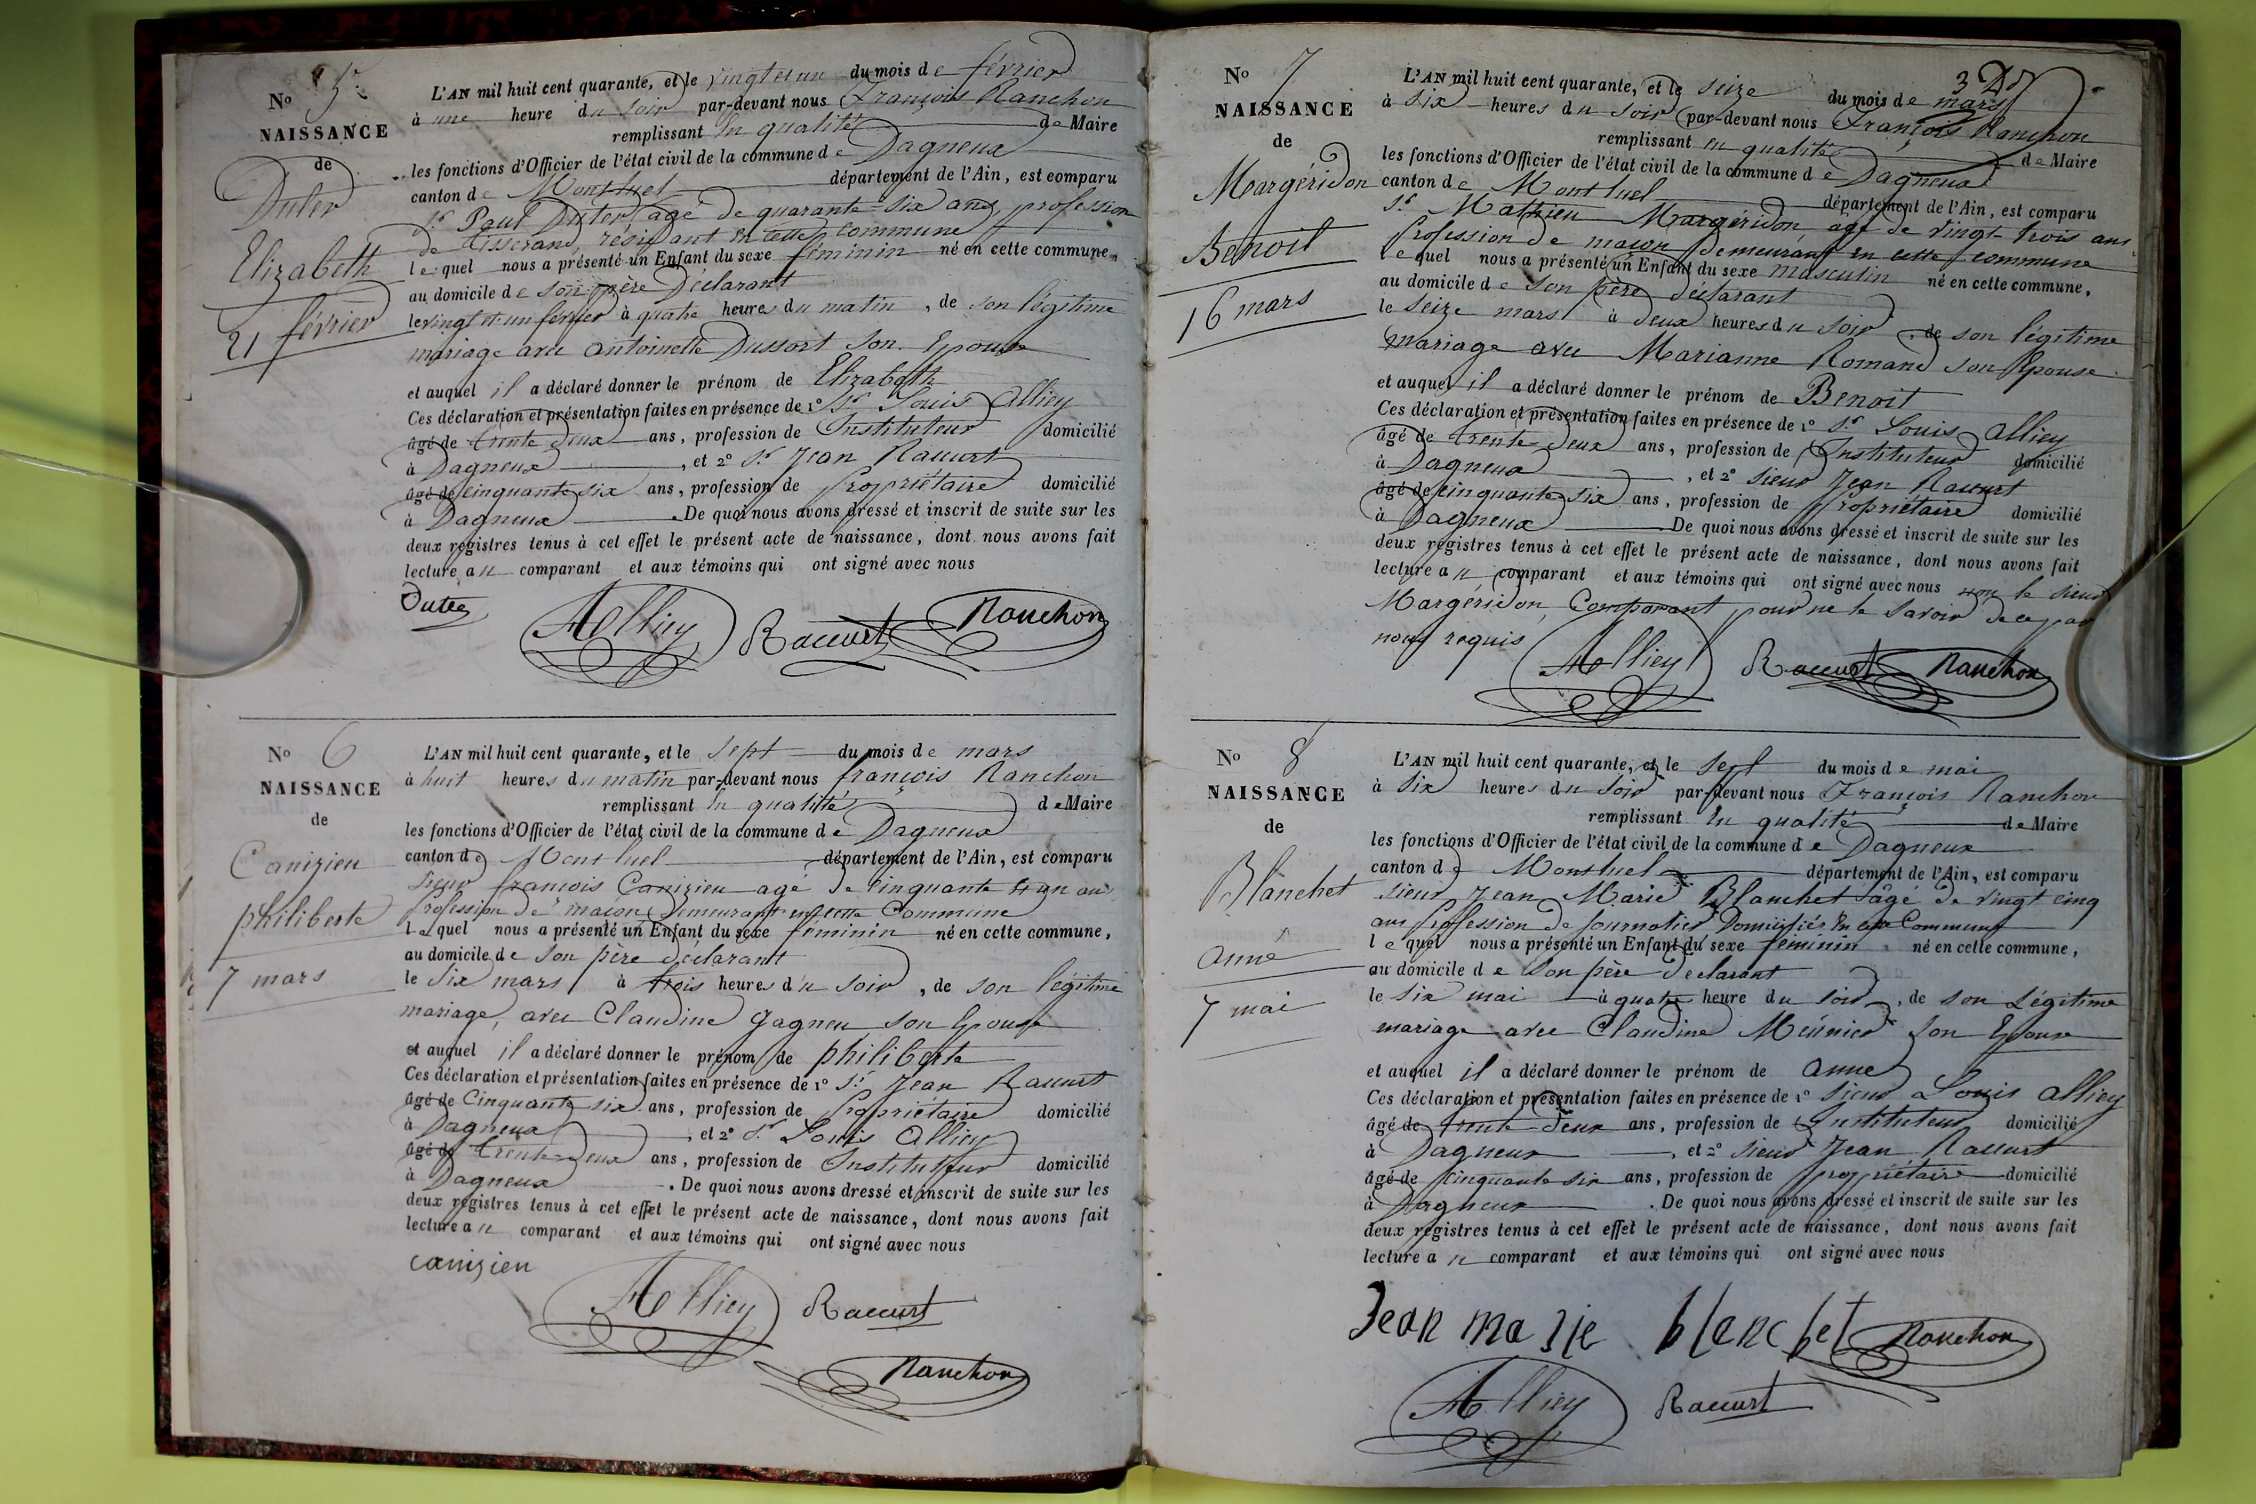 No 5
NAISSANCE
de
Duter
Elizabeth
21 février
L'AN mil huit cent quarante, et le vingt et un du mois de février
à une heure du soir par-devant nous François Ranchon
remplissant en qualité de Maire
les fonctions d'Officier de l'état civil de la commune de Dagneux
canton de Montluel département de l'Ain, est comparu
Sr Paul Duter agé de quarante-six ans, profession
de tisserand, résidant en cette commune
lequel nous a présenté un Enfant du sexe féminin né en cette commune,
au domicile de son père Déclarant
le vingt et un février à quatre heures du matin, de son légitime
mariage avec antoinette Dussort son Epouse
et auquel il a déclaré donner le prénom de Elizabeth
Ces déclaration et présentation faites en présence de 1o Sr Louis Alliey
âgé de trente deux ans, profession de Instituteur domicilié
à Dagneux, et 2o Sr Jean Raccurt
âgé de cinquante six ans, profession de Propriétaire domicilié
à Dagneux. De quoi nous avons dressé et inscrit de suite sur les
deux registres tenus à cet effet le présent acte de naissance, dont nous avons fait
lecture au comparant et aux témoins qui ont signé avec nous
Duter Alliey Raccurt Ranchon
No 6
NAISSANCE
de
Canizieu
philiberte
7 mars
L'AN mil huit cent quarante, et le sept du mois de mars
à huit heures du matin par-devant nous françois Ranchon
remplissant en qualité de Maire
les fonctions d'Officier de l'état civil de la commune de Dagneux
canton de Montluel département de l'Ain, est comparu
sieur françois Canizieu agé de cinquante un ans
Profession de maçon Demeurant en cette Commune
lequel nous a présenté un Enfant du sexe féminin né en cette commune,
au domicile de son père déclarant
le six mars à trois heures du soir, de son légitime
mariage, avec Claudine Gagneu son Epouse
et auquel il a déclaré donner le prénom de philiberte
Ces déclaration et présentation faites en présence de 1o Sr Jean Raccurt
âgé de Cinquante six ans, profession de Propriétaire domicilié
à Dagneux, et 2o Sr Louis Alliey
âgé de trente-deux ans, profession de Instituteur domicilié
à Dagneux. De quoi nous avons dressé et inscrit de suite sur les
deux registres tenus à cet effet le présent acte de naissance, dont nous avons fait
lecture au comparant et aux témoins qui ont signé avec nous
canizieu Alliey Raccurt
Ranchon
3
No 7
NAISSANCE
de
Margéridon
Benoit
16 mars
L'AN mil huit cent quarante, et le seize du mois de mars
à six heures du soir par-devant nous François Ranchon
remplissant en qualité de Maire
les fonctions d'Officier de l'état civil de la commune de Dagneux
canton de Montluel département de l'Ain, est comparu
Sr Mathieu Margéridon, agé de vingt trois ans
Profession de maçon demeurant en cette commune
lequel nous a présenté un Enfant du sexe masculin né en cette commune,
au domicile de son père déclarant
le seize mars à deux heures du soir, de son légitime
mariage avec Marianne Romand son Epouse
et auquel il a déclaré donner le prénom de Benoit
Ces déclaration et présentation faites en présence de 1o Sr Louis Alliey
âgé de trente-deux ans, profession de Instituteur domicilié
à Dagneux, et 2o sieur Jean Raccurt
âgé de cinquante six ans, profession de Propriétaire domicilié
à Dagneux De quoi nous avons dressé et inscrit de suite sur les
deux registres tenus à cet effet le présent acte de naissance, dont nous avons fait
lecture au comparant et aux témoins qui ont signé avec nous non le sieur
Margéridon, Comparant pour ne le savoir de ce par
nous requis
Alliey Raccurt Ranchon
No 8
NAISSANCE
de
Blanchet
anne
7 mai
L'AN mil huit cent quarante, et le sept du mois de mai
à six heures du soir par-devant nous François Ranchon
remplissant en qualité de Maire
les fonctions d'Officier de l'état civil de la commune de Dagneux
canton de Montluel département de l'Ain, est comparu
sieur Jean Marie Blanchet âgé de vingt cinq
ans Profession de Journalier Domicilié en cette Commune
lequel nous a présenté un Enfant du sexe féminin né en cette commune,
au domicile de son père déclarant
le six mai à quatre heure du soir, de son Légitime
mariage avec Claudine Meunier son Epouse
et auquel il a déclaré donner le prénom de anne
Ces déclaration et présentation faites en présence de 1o sieur Louis Alliey
âgé de trente-deux ans, profession de Instituteur domicilié
à Dagneux, et 2o sieur Jean Raccurt
âgé de cinquante six ans, profession de propriétaire domicilié
à Dagneux. De quoi nous avons dressé et inscrit de suite sur les
deux registres tenus à cet effet le présent acte de naissance, dont nous avons fait
lecture au comparant et aux témoins qui ont signé avec nous
Jean marie blanchet Ranchon
Alliey Raccurt